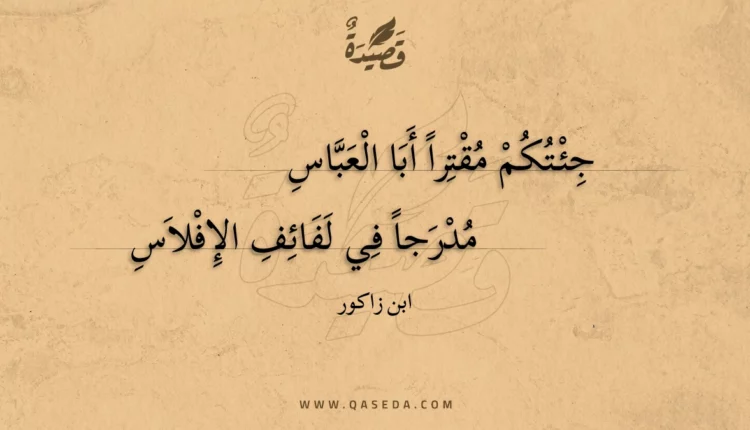 قَصِيدَةٌ
جِئْتُكُمْ مُقْتِراً أَبَا الْعَبَّاسِ
مُدْرَجاً فِي لَفَائِفِ الإِفْلاَسِ
ابن زاكور
WWW.QASEDA.COM